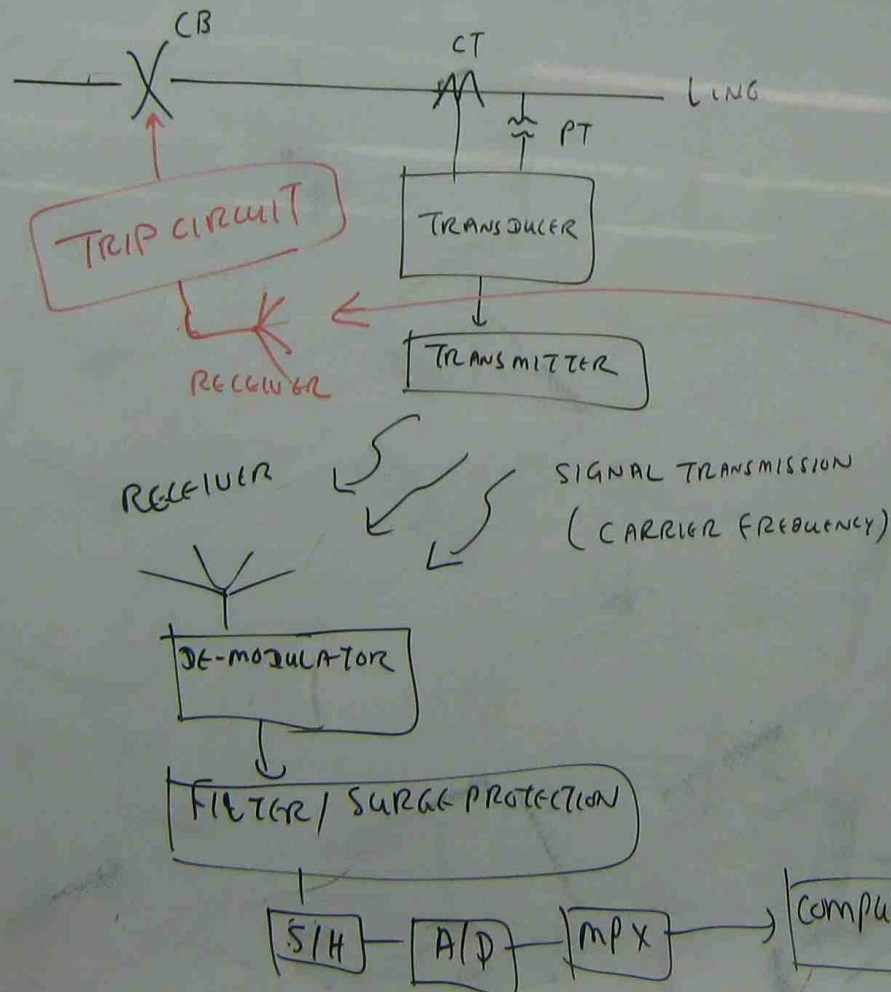 CB
CT
LINE
PT
TRIP CIRCUIT
TRANSDUCER
RECEIVER
TRANSMITTER
RECEIVER
SIGNAL TRANSMISSION
(CARRIER FREQUENCY)
DE-MODULATOR
FILTER / SURGE PROTECTION
S/H
A/D
MPX
COMPU